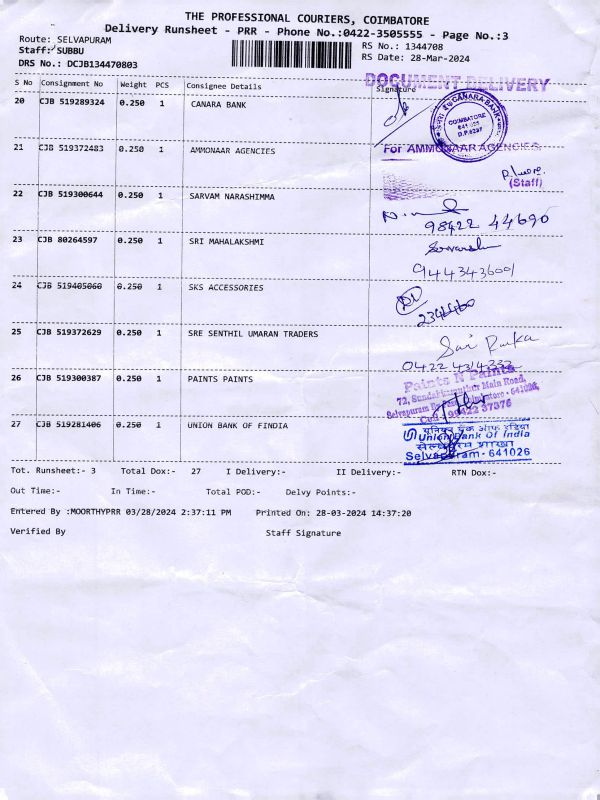 THE PROFESSIONAL COURIERS, COIMBATORE
Delivery Runsheet - PRR - Phone No.:0422-3505555 - Page No.:3
Route: SELVAPURAM
RS No.: 1344708
Staff: SUBBU
RS Date: 28-Mar-2024
DRS No.: DCJB134470803
DOCUMENT DELIVERY
S No Consignment No Weight PCS Consignee Details Signature
20 CJB 519289324 0.250 1 CANARA BANK
CANARA BANK
COIMBATORE
21 CJB 519372483 0.250 1 AMMONAAR AGENCIES
For AMMONAAR AGENCIES
(Staff)
22 CJB 519300644 0.250 1 SARVAM NARASHIMMA
98422 44690
23 CJB 80264597 0.250 1 SRI MAHALAKSHMI
9443436001
24 CJB 519405060 0.250 1 SKS ACCESSORIES
25 CJB 519372629 0.250 1 SRE SENTHIL UMARAN TRADERS
26 CJB 519300387 0.250 1 PAINTS PAINTS
Paints N Paints
Main Road,
27 CJB 519281406 0.250 1 UNION BANK OF FINDIA
यूनियन बैंक ऑफ इंडिया
Union Bank Of India
शाखा
Selvapuram - 641026
Tot. Runsheet:- 3 Total Dox:- 27 I Delivery:- II Delivery:- RTN Dox:-
Out Time:- In Time:- Total POD:- Delvy Points:-
Entered By :MOORTHYPRR 03/28/2024 2:37:11 PM Printed On: 28-03-2024 14:37:20
Verified By Staff Signature